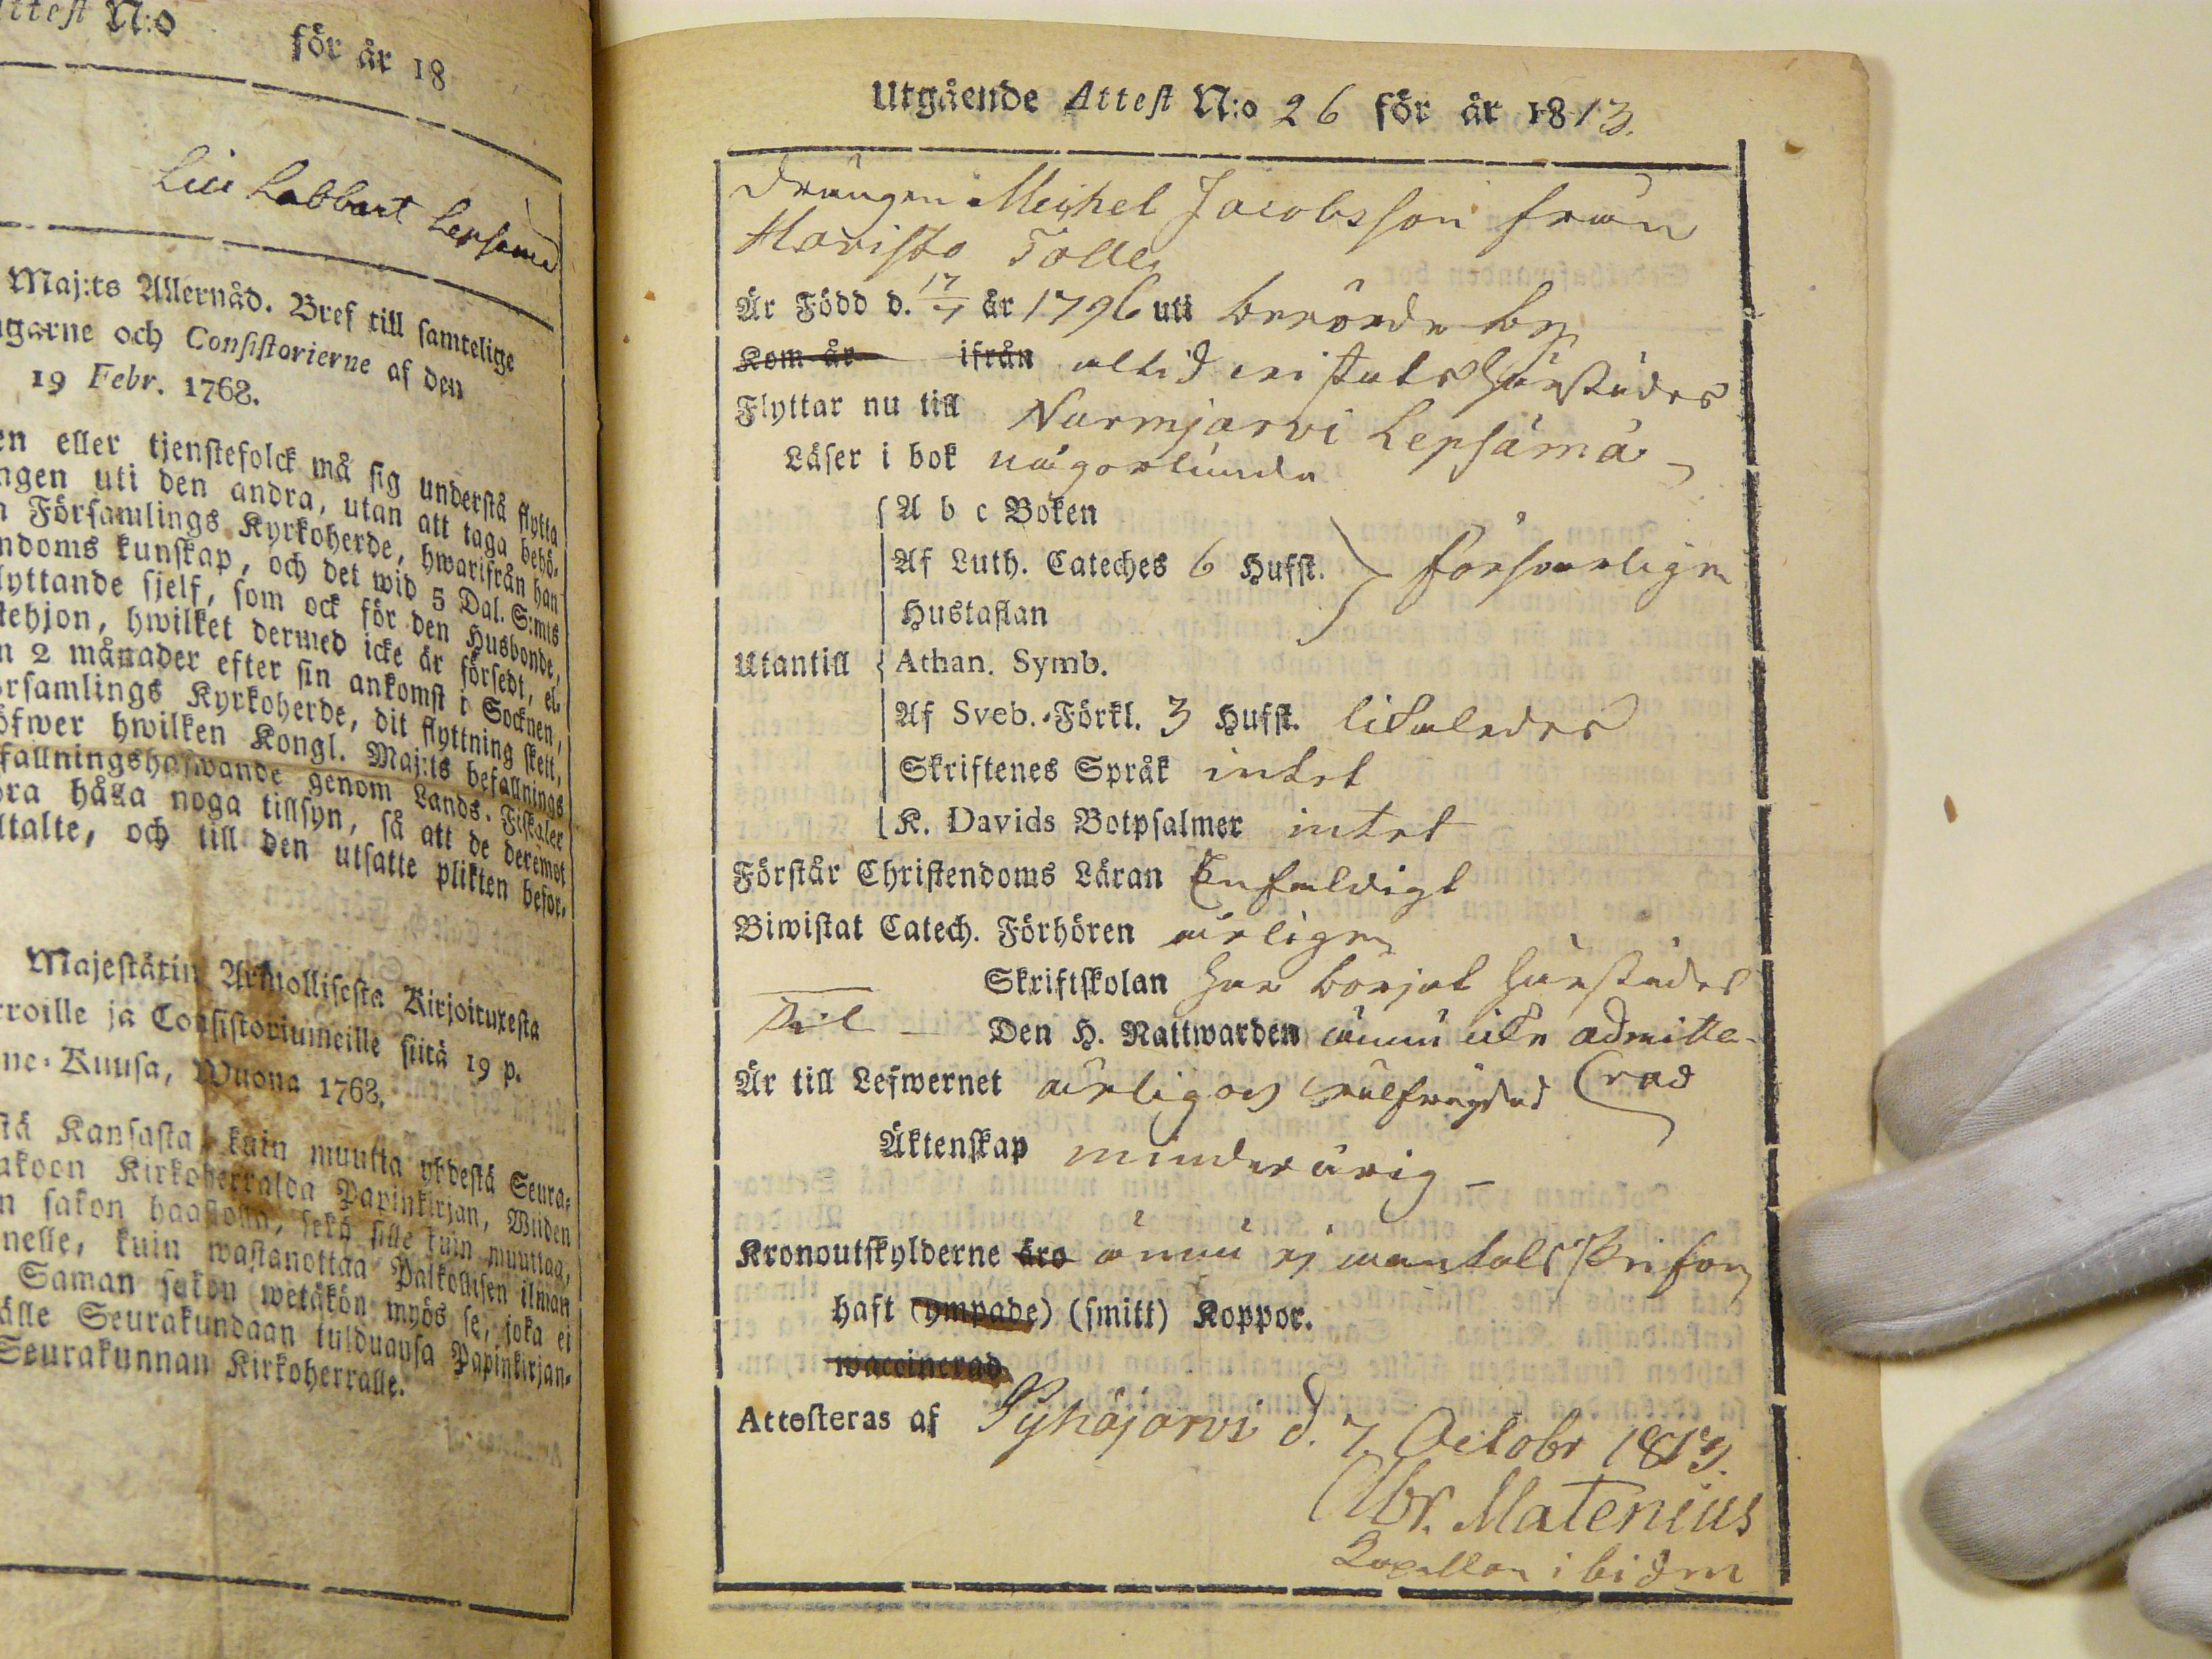 Attest N:o för år 18
Lepsemä
Maj:ts Allernåd. Bref till samtelige
garne och Consistorierne af den
19 Febr. 1768.
en eller tjenstefolck må sig understå flytta
ngen uti den andra, utan att taga behö-
n Församlings Kyrkoherde, hwarifrån han
ndoms kunskap, och det wid 5 Dal. S:mts
lyttande sjelf, som ock för den Husbonde,
tehjon, hwilket dermed icke är försedt, el.
n 2 månader efter sin ankomst i Socknen,
rsamlings Kyrkoherde, dit flyttning skett,
öfwer hwilken Kongl. Maj:ts befallnings
fallningshafwande genom Lands-Fiskaler
ra hålla noga tillsyn, så att de deremot
ltalte, och till den utsatte plikten befor-
Majestätin Armollisesta Kirjoituxesta
rroille ja Consistoriumeille siitä 19 p.
ne-Kuusa, Wuona 1768.
stä Kansasta, kuin muutta yhdestä Seura-
akoon Kirkoherralda Papinkirjan, Wiiden
n sakon haastolla, sekä sille kuin muuttaa,
nelle, kuin wastanottaa Palkollisen ilman
Saman sakon wetäkön myös se, joka ei
älle Seurakundaan tulduansa Papinkirjan-
Seurakunnan Kirkoherralle.
Utgående Attest N:o 26 för år 1813.
Drängen Michel Jacobsson från
Haristo Tolle
Är Född d. 17/7 år 1796 uti berörde by
Kom år ifrån alltid vistats härstädes
Flyttar nu till Nurmjärvi Lepsämä
Läser i bok någorlunda
A b c Boken
Af Luth. Cateches 6 Hufst. försvarligen
Hustaflan
Utantill Athan. Symb.
Af Sveb. Förkl. 3 Hufst. likaledes
Skriftenes Språk intet
K. Davids Botpsalmer intet
Förstår Christendoms Läran Enfaldigt
Biwistat Catech. Förhören årligen
Skriftskolan har börjat härstädes
Den H. Nattwarden ännu icke admitte-
Är till Lefwernet ärlig och välfräjdad (rad
Äktenskap minderårig
Kronoutskylderne äro ännu ej mantalsskrifven
haft (ympade) (smitt) Koppor.
waccinerad
Attesteras af Pyhäjärvi d. 7. Octobr 1813.
Abr. Matenius
Capellan ibidm